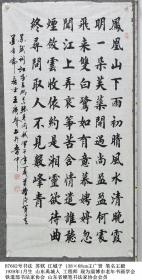 鳳凰山下雨初晴水風清晚霞
明一朵芙蕖開過尚盈盈何處
飛來雙白鷺如有意慕娉婷忽
聞江上弄哀箏苦含情遣誰聽
煙斂雲收依約是湘靈欲待曲
終尋問取人不見數峰青
书法 苏轼 江城子 138×69cm 王广智 笔名王毅
1939年1月生 山东禹城人 工程师 现为淄博市老年书画学会
铁道部书法家协会 山东省硬笔书法家协会会员